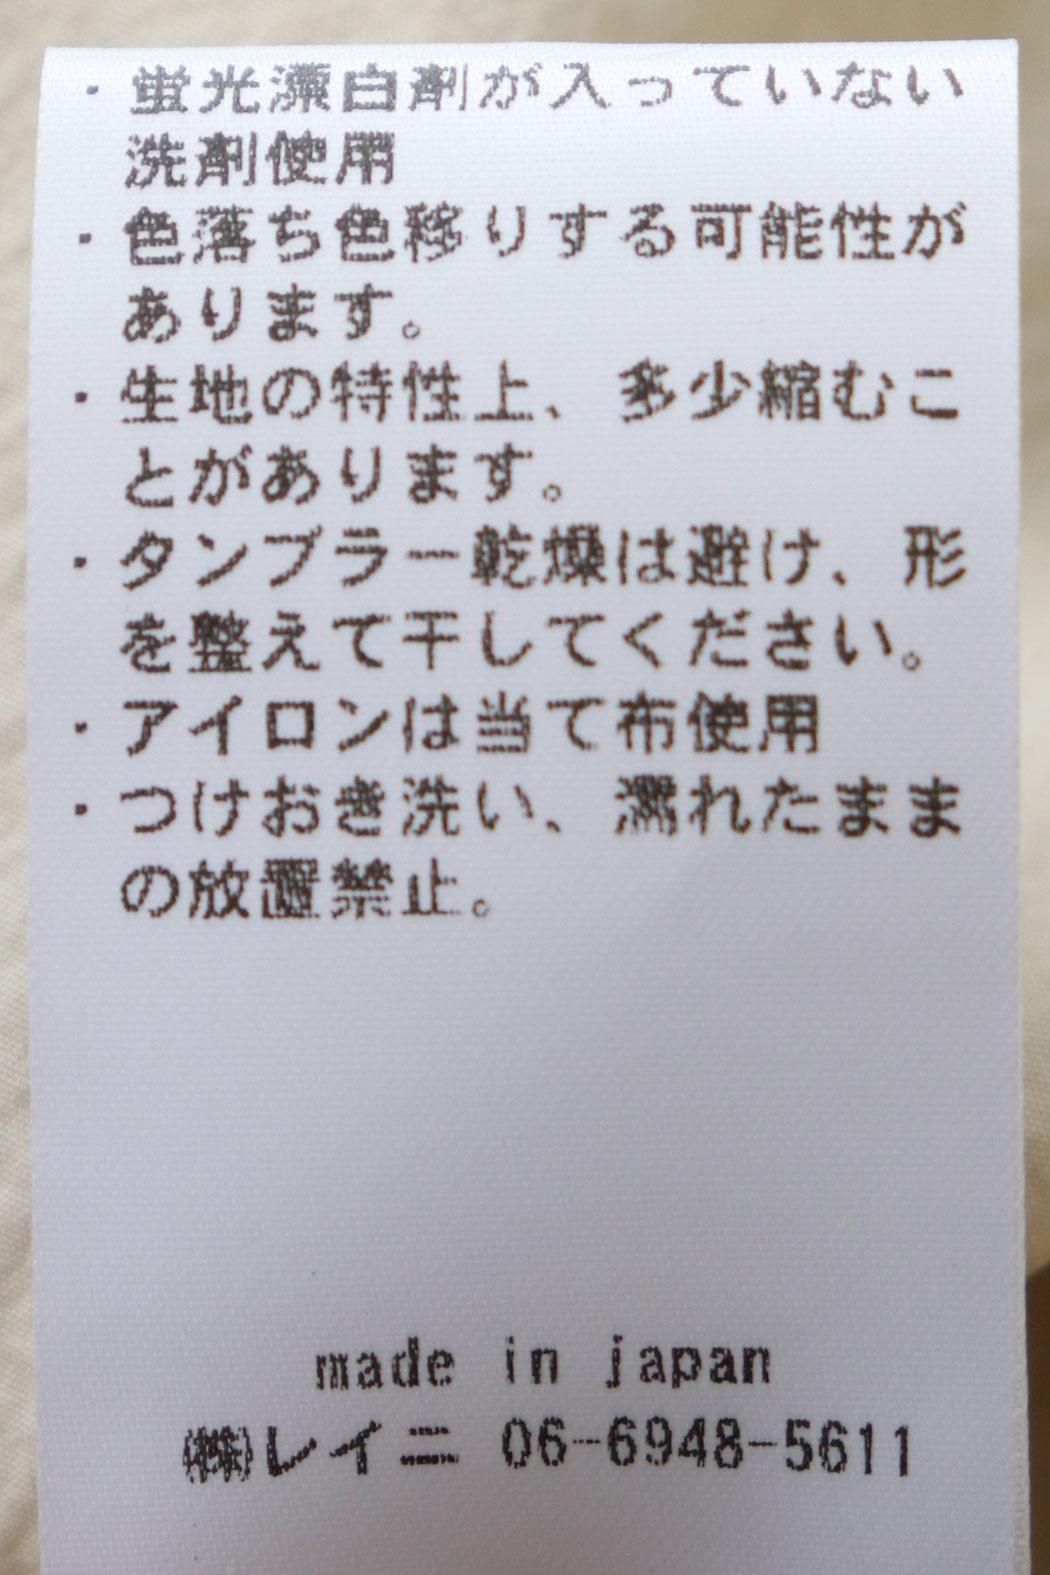 ・蛍光漂白剤が入っていない
洗剤使用
・色落ち色移りする可能性が
あります。
・生地の特性上、多少縮むこ
とがあります。
・タンブラー乾燥は避け、形
を整えて干してください。
・アイロンは当て布使用
・つけおき洗い、濡れたまま
の放置禁止。
made in japan
㈱レイニ 06-6948-5611